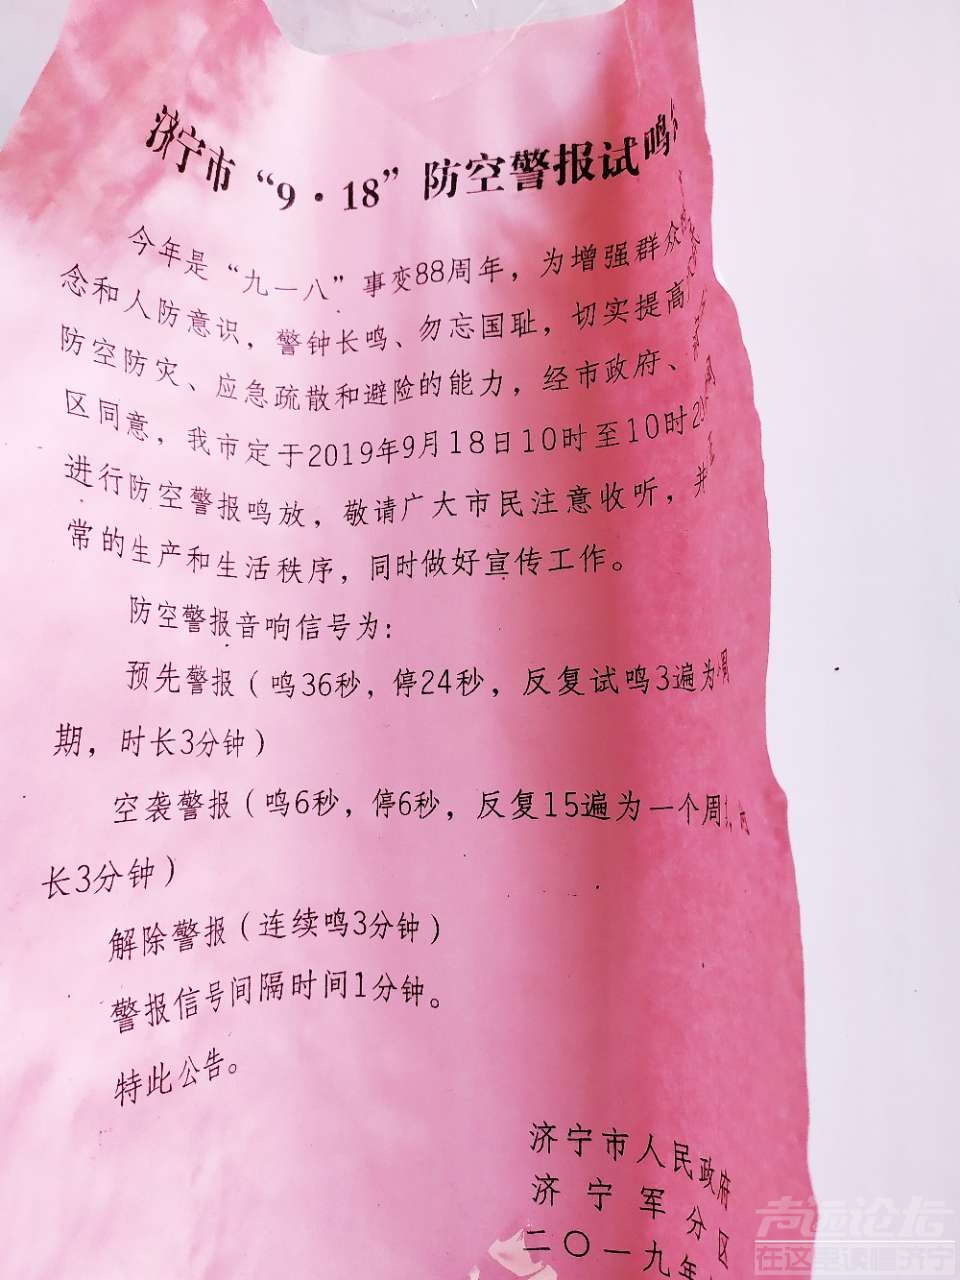 济宁市“9·18”防空警报试鸣
今年是“九一八”事变88周年，为增强群众
念和人防意识，警钟长鸣、勿忘国耻，切实提高
防空防灾、应急疏散和避险的能力，经市政府、
区同意，我市定于2019年9月18日10时至10时
进行防空警报鸣放，敬请广大市民注意收听，并
常的生产和生活秩序，同时做好宣传工作。
防空警报音响信号为：
预先警报（鸣36秒，停24秒，反复试鸣3遍为
期，时长3分钟）
空袭警报（鸣6秒，停6秒，反复15遍为一个周
长3分钟）
解除警报（连续鸣3分钟）
警报信号间隔时间1分钟。
特此公告。
济宁市人民政府
济宁军分区
二〇一九年
在这里读懂济宁